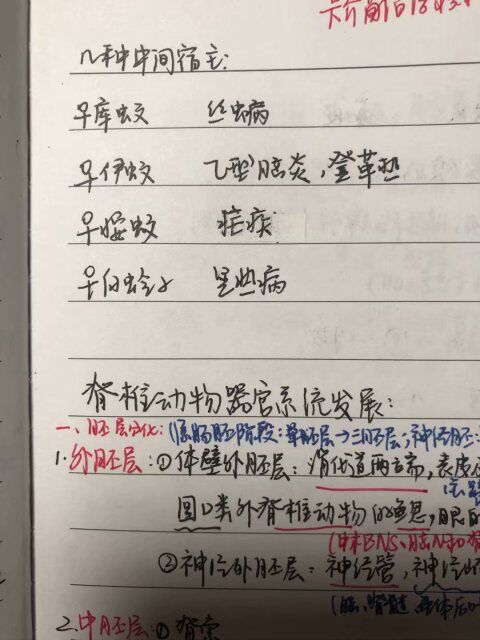 几种中间宿主:
♀库蚊 丝虫病
♀伊蚊 乙型脑炎,登革热
♀按蚊 疟疾
♀白蛉子 黑热病
脊椎动物器官系统发展:
一、胚层分化:(原肠胚阶段:单胚层→三胚层;神经胚:
1.外胚层:①体壁外胚层:消化道两端,表皮
圆口类外脊椎动物的鱼鳃,眼的
(中枢NS、脑N和脊
②神经外胚层:神经管,神经嵴
(脑、脊髓
2.中胚层①脊索